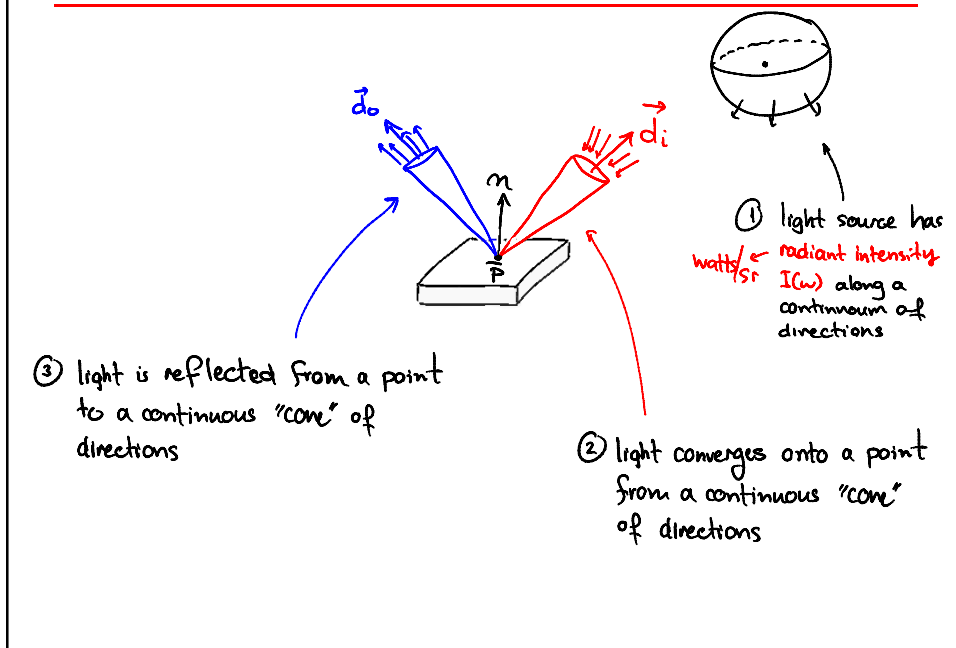 d₀
dᵢ
n
p̅
① light source has
watts/sr ← radiant intensity
I(ω) along a
continuum of
directions
③ light is reflected from a point
to a continuous "cone" of
directions
② light converges onto a point
from a continuous "cone"
of directions